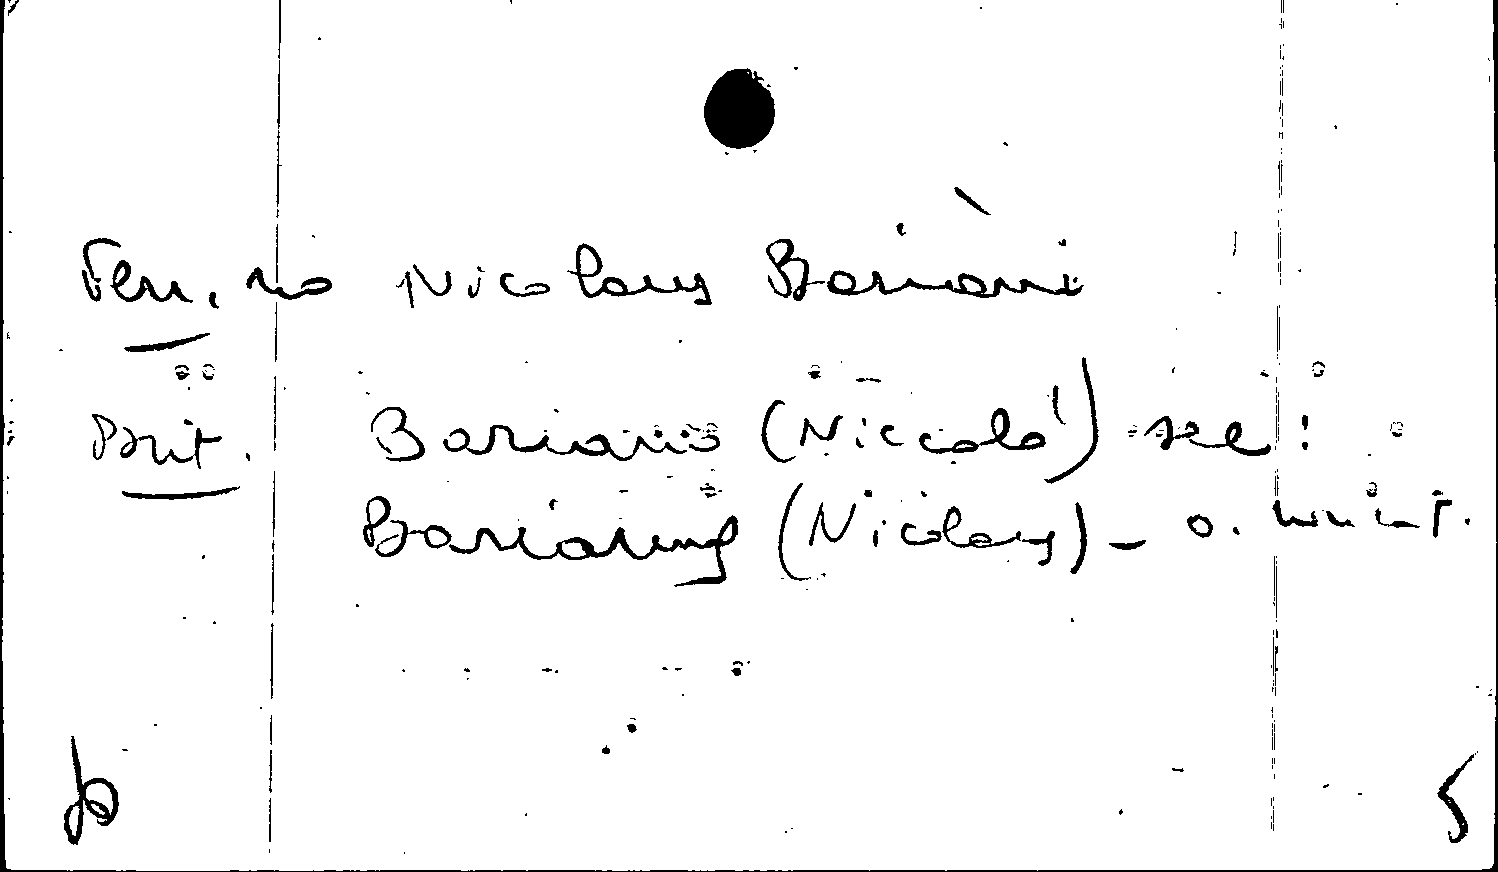 Ferr. no Nicolaus Bariani
Brit. Bariano (Niccolò) see:
Barianus (Nicolaus) - o.
b 5